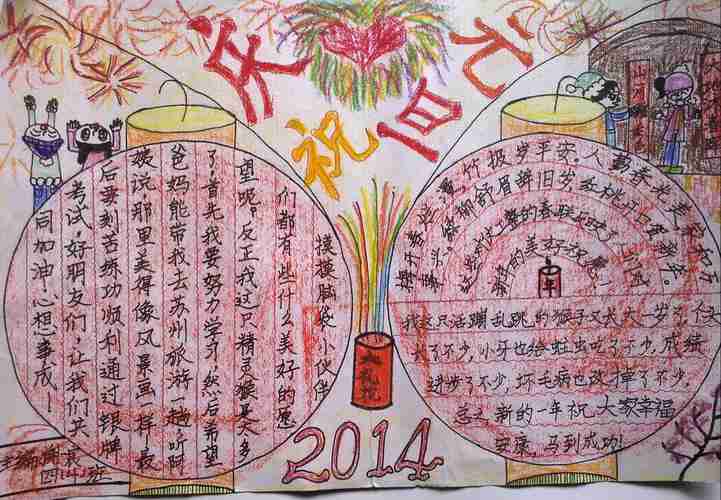 庆祝元旦
摸摸脑袋小伙伴
们都有些什么美好的愿
望呢。反正我这只精灵猴是太多
了，首先我要努力学习，然后希望
爸妈能带我去苏州旅游一趟听阿
姨说那里美得像风景画一样。最
后要刻苦练功顺利通过银牌
考试，好朋友们，让我们共
同加油心想事成！
竹报岁平安。人勤春光美
舒眉辞旧岁
的春联
的美好祝愿！
年
我这只活蹦乱跳的猴子又大大一岁了，个头
大了不少，小牙也给蛀虫吃了不少，成绩
进步了不少，坏毛病也改掉了不少，
总之新的一年祝大家幸福
安康，马到成功！
大礼花
山河
大地
主编
班
2014